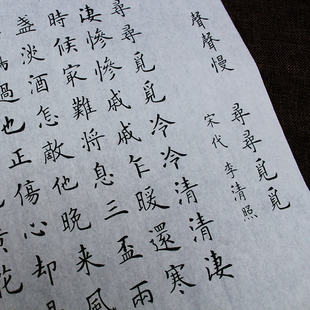 聲聲慢 尋尋覓覓
宋代 李清照
尋尋覓覓冷冷清清淒
淒慘慘戚戚乍暖還寒
時候最難將息三盃兩
盞淡酒怎敵他晚來風
過也正傷心却是
黃花